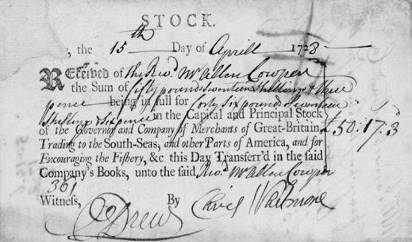 STOCK.
, the 15th Day of Aprill 1728
Received of The Revd. Mr Allen Cowper
the Sum of fifty pounds Seventeen Shillings & three
pence being in full for Forty Six pounds Seventeen
Shillings & Six pence in the Capital and Principal Stock
of the Governor and Company of Merchants of Great-Britain, £50:17:3
Trading to the South-Seas, and other Parts of America, and for
Encouraging the Fishery, &c this Day Transferr'd in the said
Company's Books, unto the said Revd. Mr Allen Cowper
301
Witness, By
Drew